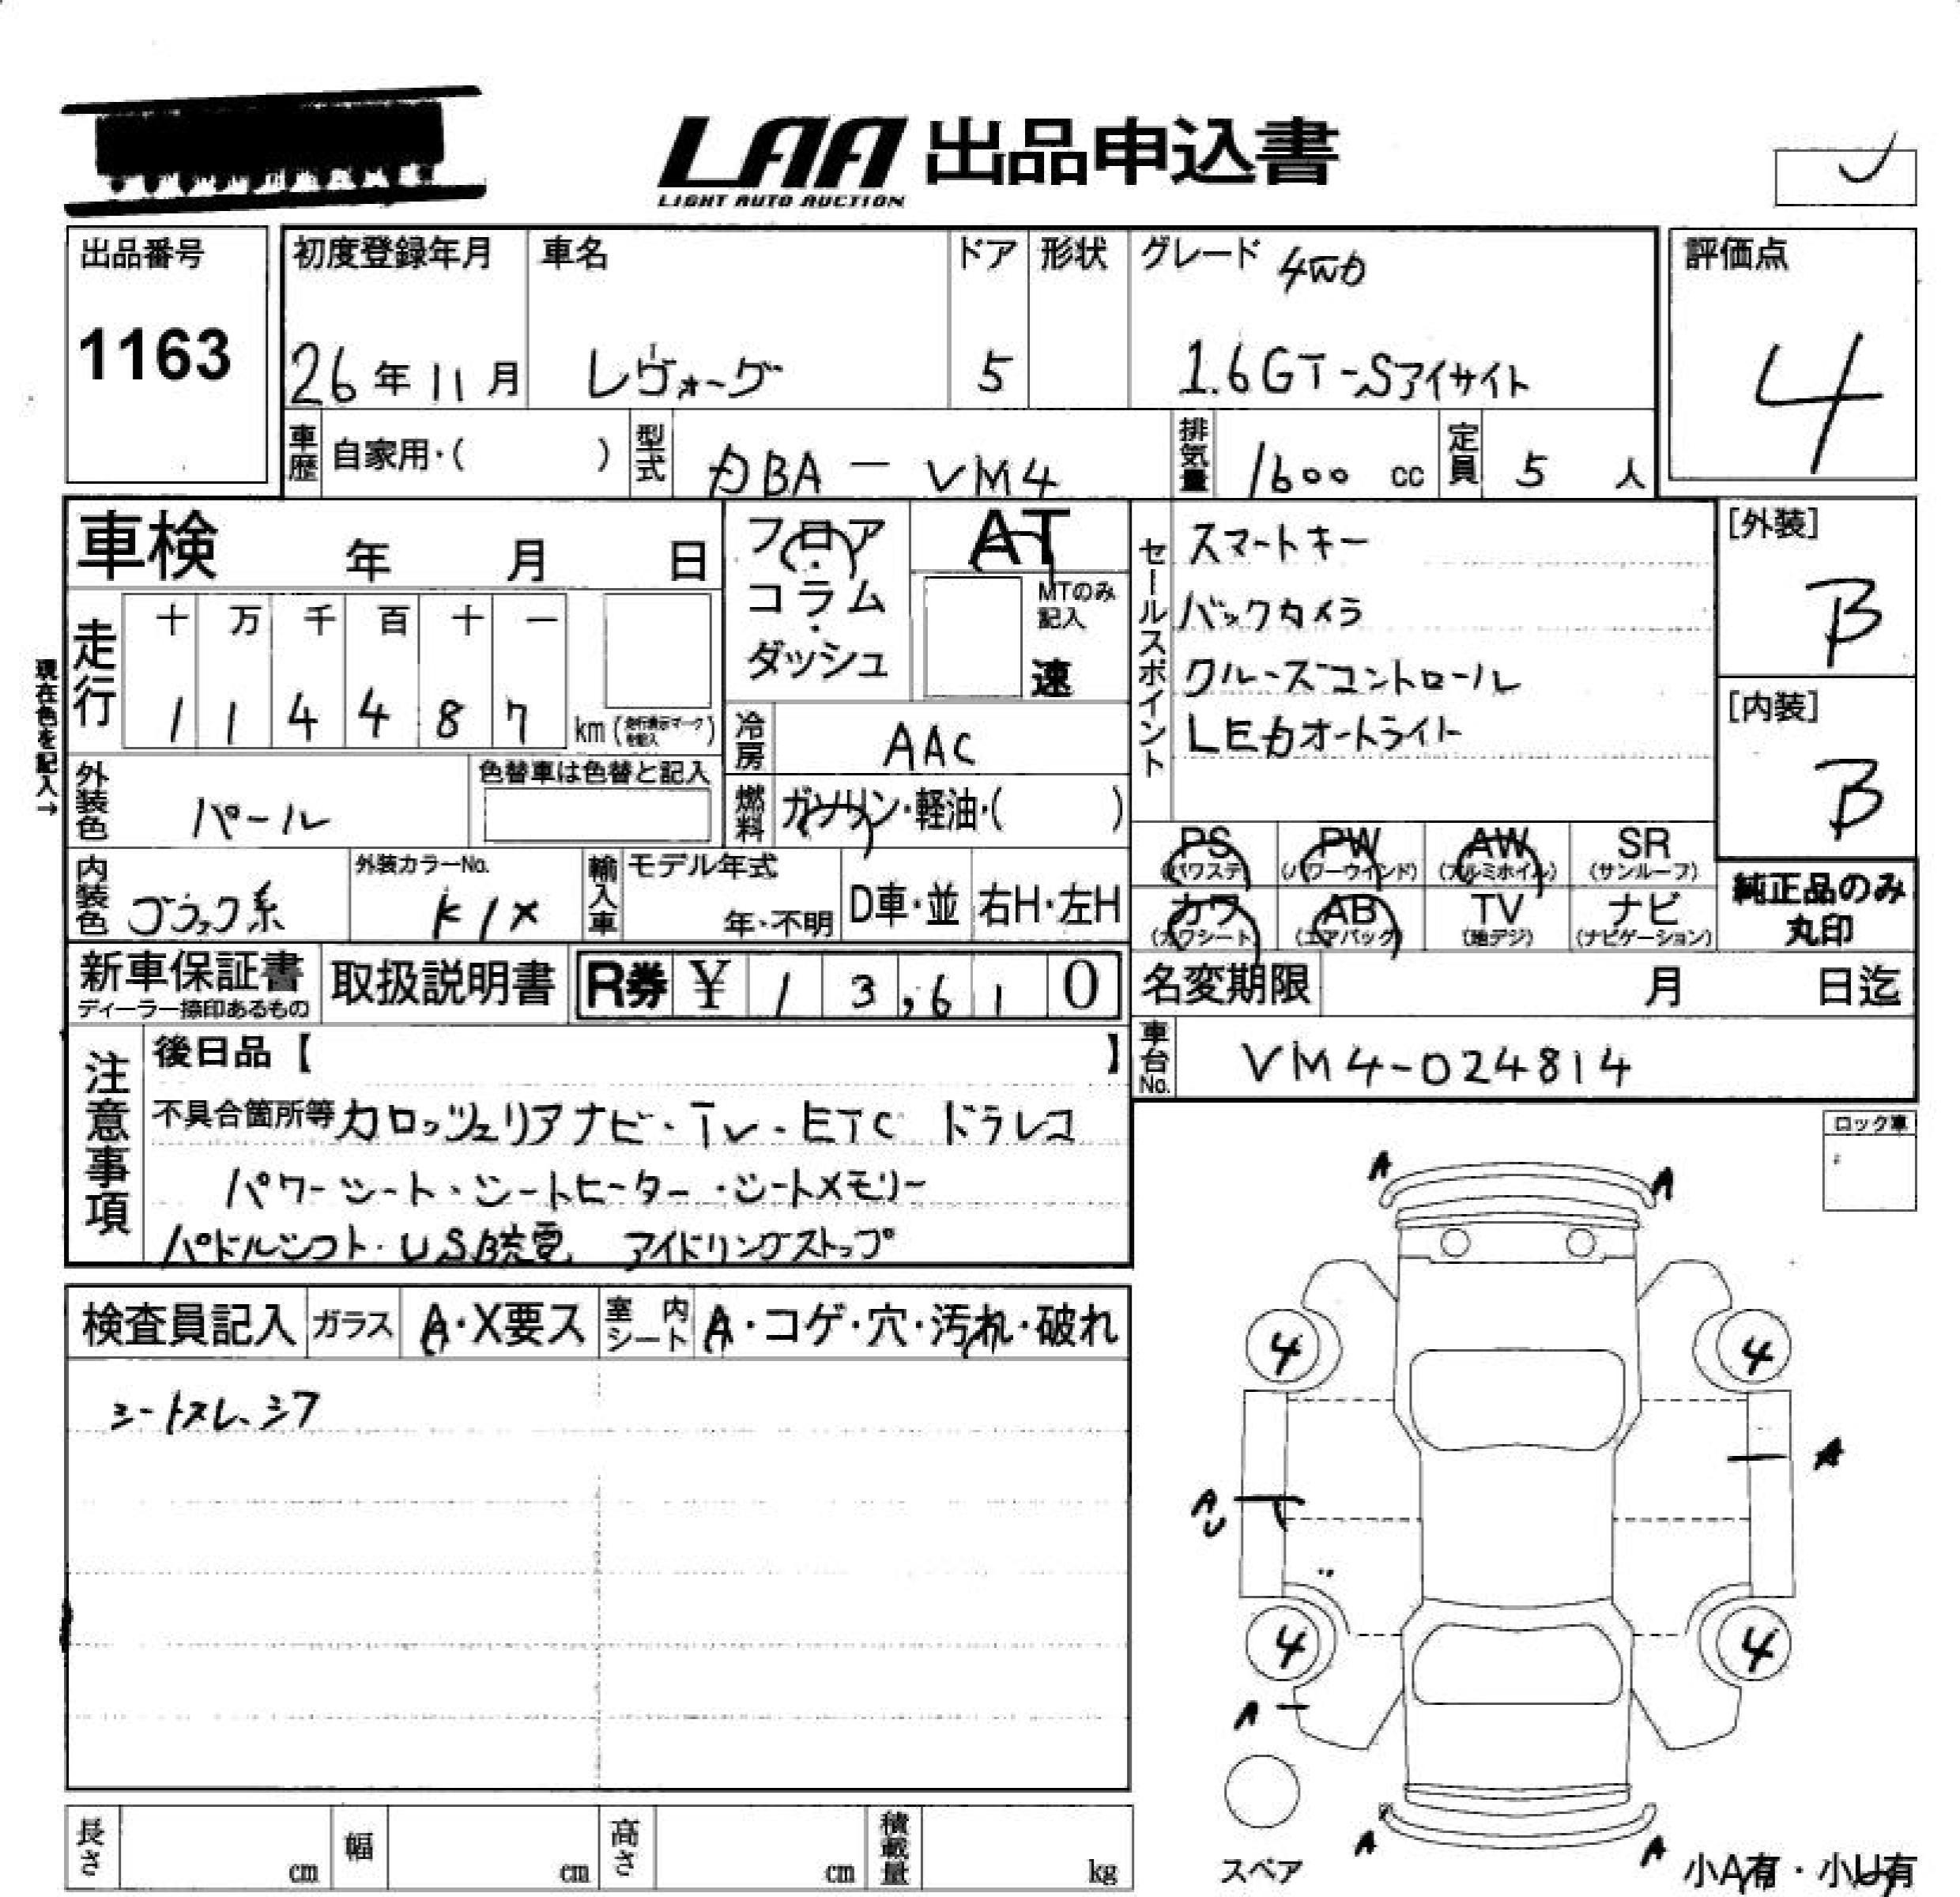 LAA 出品申込書
LIGHT AUTO AUCTION
出品番号
1163
初度登録年月
26年11月
車名
レヴォーグ
ドア
5
形状
グレード 4WD
1.6GT-Sアイサイト
評価点
4
車歴 自家用・( )
型式 DBA-VM4
排気量 1600 cc
定員 5 人
車検 年 月 日
フロア・コラム・ダッシュ
AT
MTのみ記入
速
走行
十 万 千 百 十 一
1 1 4 4 8 7 km (走行表示マークを記入)
現在色を記入→
冷房 AAC
外装色 パール
色替車は色替と記入
燃料 ガソリン・軽油・( )
内装色 ブラック系
外装カラーNo.
K1X
輸入車
モデル年式
年・不明
D車・並
右H・左H
セールスポイント
スマートキー
バックカメラ
クルーズコントロール
LEDオートライト
[外装]
B
[内装]
B
PS (パワステ)
PW (パワーウインド)
AW (アルミホイル)
SR (サンルーフ)
カワ (カワシート)
AB (エアバック)
TV (地デジ)
ナビ (ナビゲーション)
純正品のみ
丸印
新車保証書
ディーラー捺印あるもの
取扱説明書
R券 ¥ 13,610
名変期限 月 日迄
車台No. VM4-024814
注意事項
後日品【 】
不具合箇所等 カロッツェリアナビ・TV・ETC ドラレコ
パワーシート・シートヒーター・シートメモリー
パドルシフト・USB充電 アイドリングストップ
ロック車
検査員記入
ガラス A・X要ス
室内シート A・コゲ・穴・汚れ・破れ
シートスレ、シワ
A A
4 4
A
A
U
4 4
A
A A
スペア
小A有・小U有
長さ cm
幅 cm
高さ cm
積載量 kg